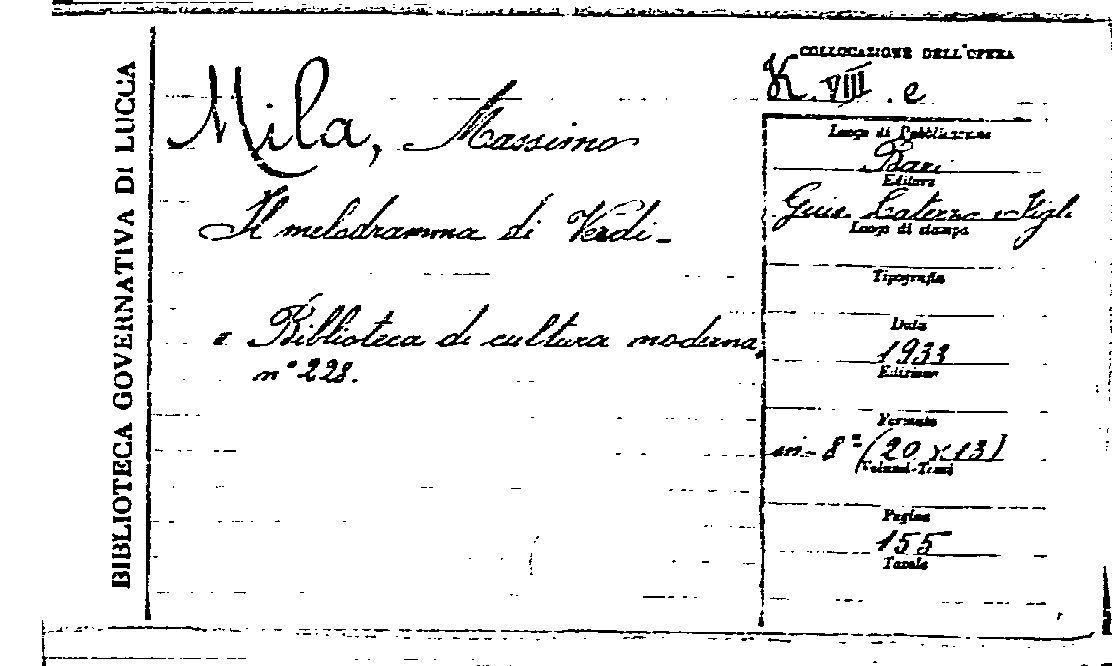 BIBLIOTECA GOVERNATIVA DI LUCCA
Mila, Massimo
Il melodramma di Verdi-
= Biblioteca di cultura moderna,
n° 228.
COLLOCAZIONE DELL'OPERA
K. VIII. e
Luogo di Pubblicazione
Bari
Editore
Gius. Laterza e Figli
Luogo di stampa
Tipografia
Data
1933
Edizione
Formato
in-8° (20x13)
Volumi-Tomi
Pagine
155
Tavole